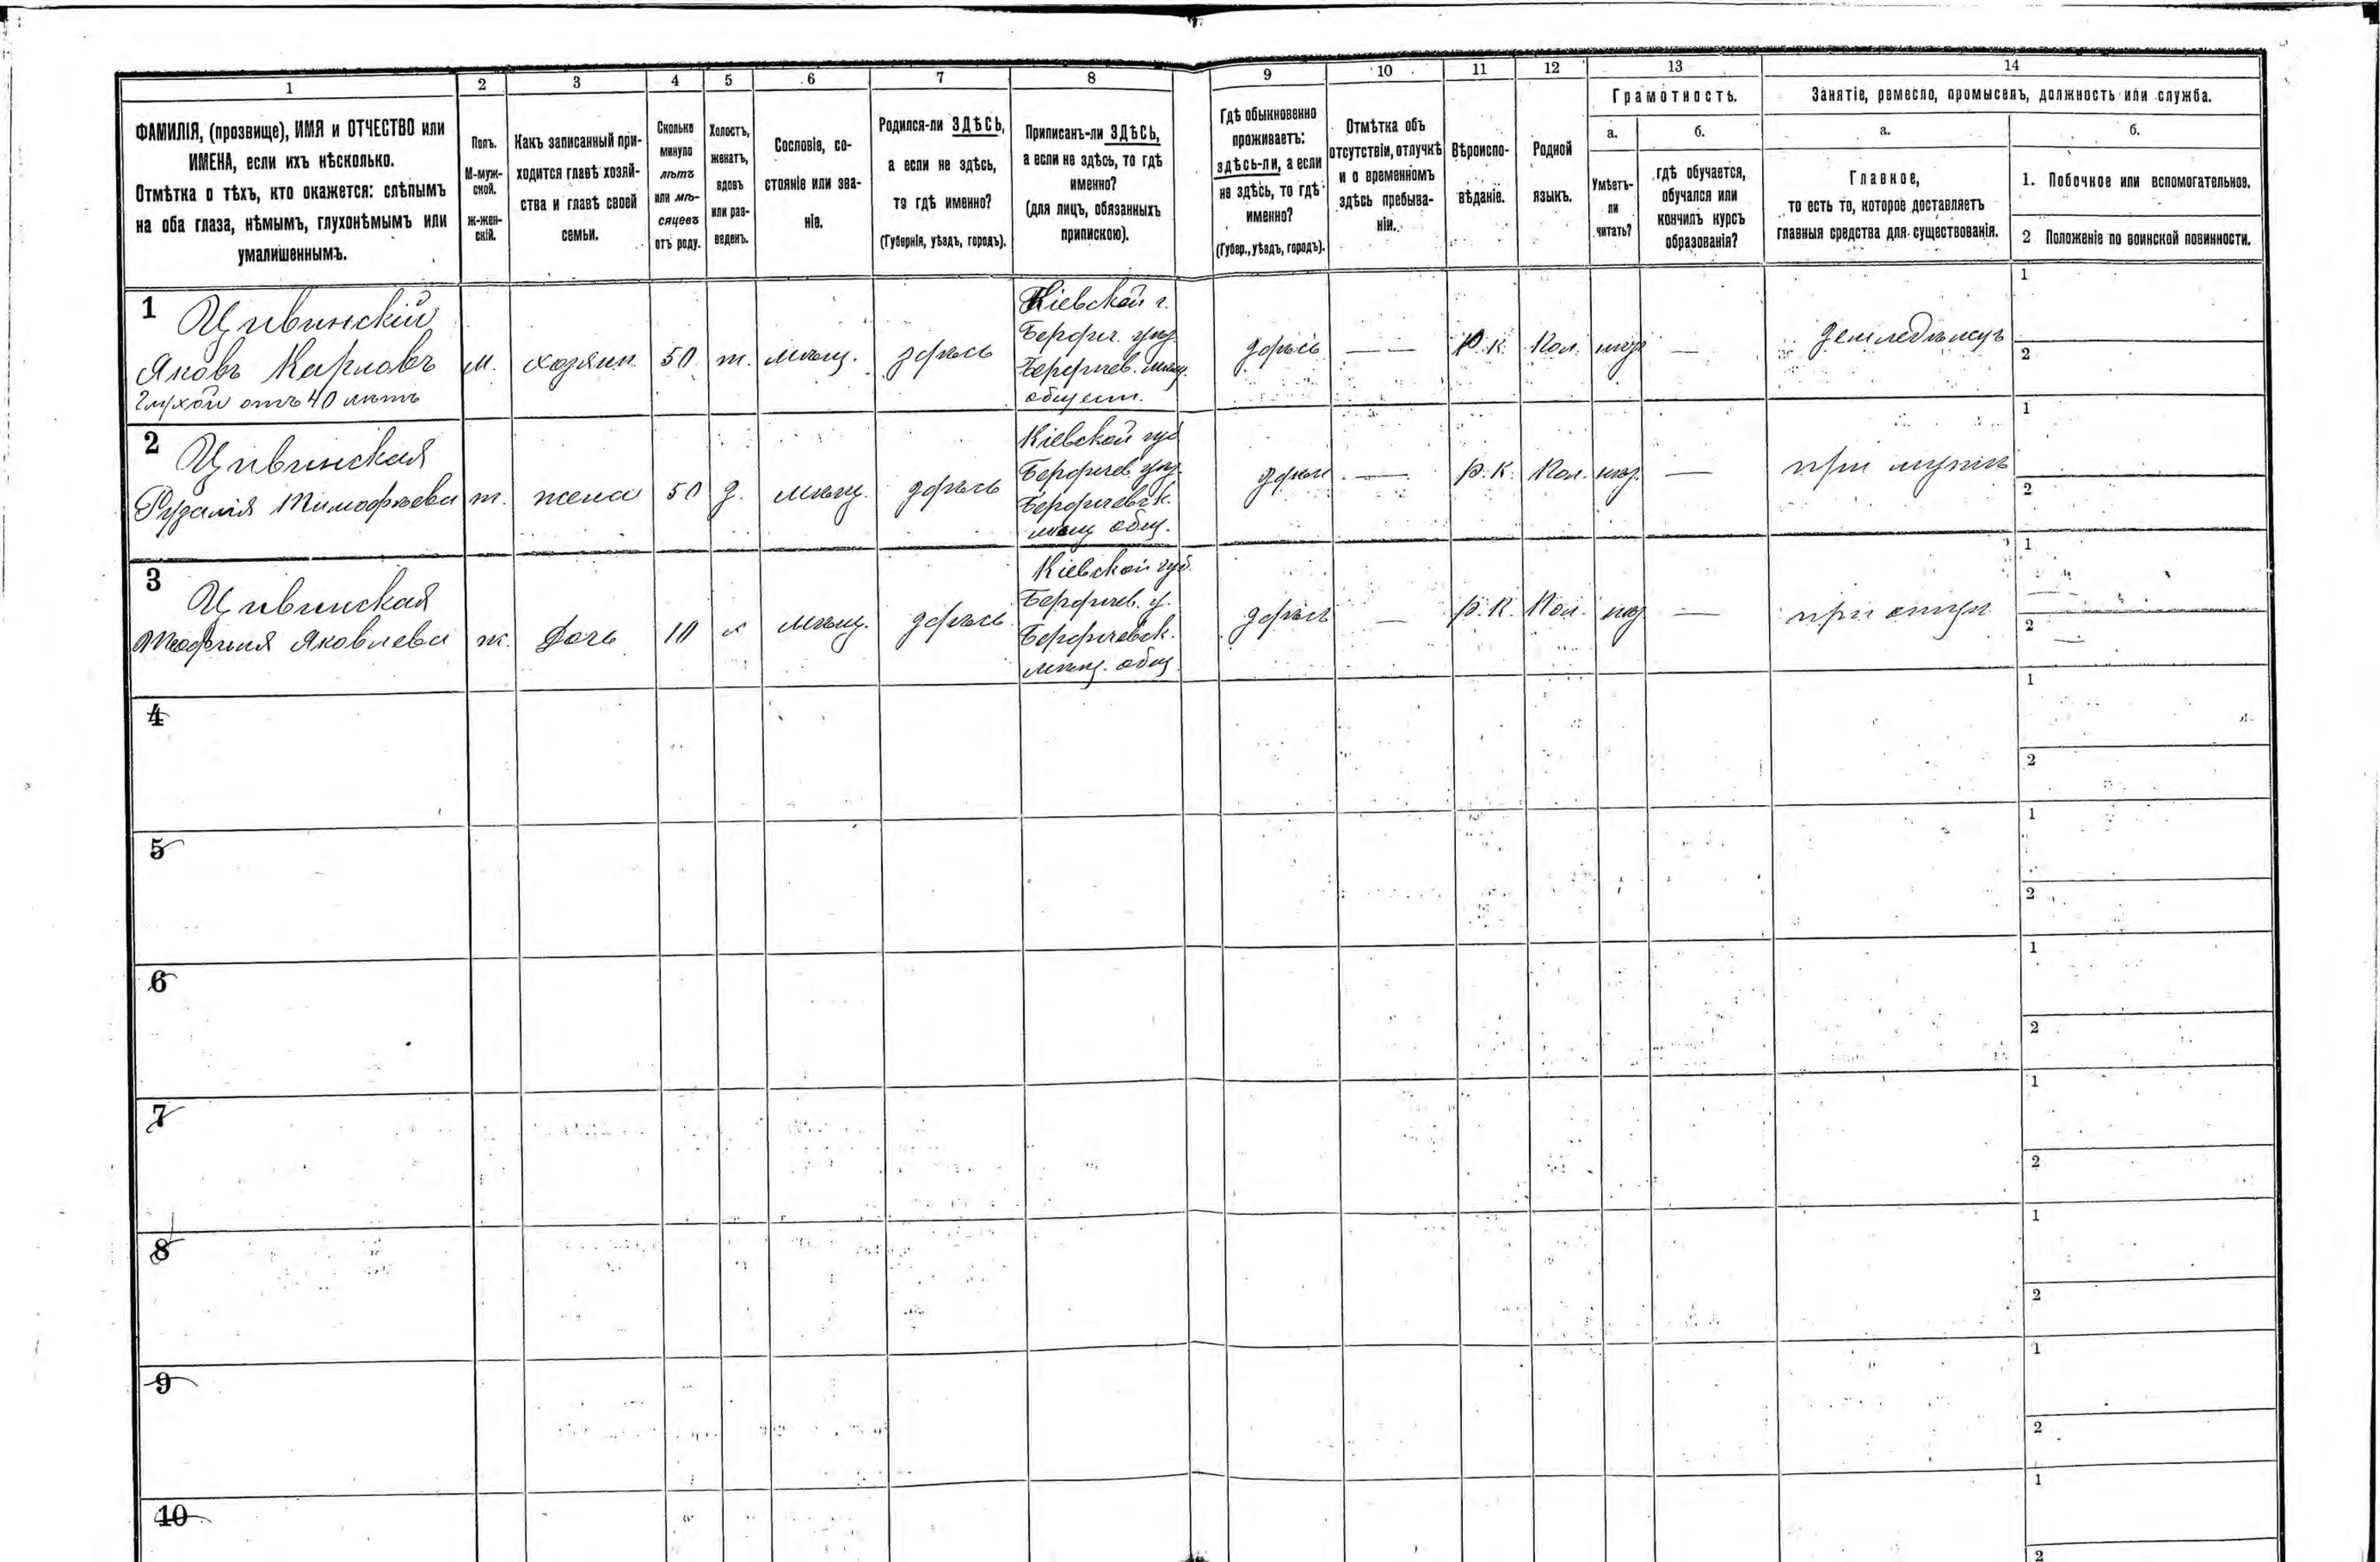 1 2 3 4 5 6 7 8 9 10 11 12 13 14
ФАМИЛІЯ, (прозвище), ИМЯ и ОТЧЕСТВО или
ИМЕНА, если ихъ нѣсколько.
Отмѣтка о тѣхъ, кто окажется: слѣпымъ
на оба глаза, нѣмымъ, глухонѣмымъ или
умалишеннымъ.
Полъ.
М-муж-
ской.
ж-жен-
скій.
Какъ записанный при-
ходится главѣ хозяй-
ства и главѣ своей
семьи.
Сколько
минуло
лѣтъ
или мѣ-
сяцевъ
отъ роду.
Холостъ,
женатъ,
вдовъ
или раз-
веденъ.
Сословіе, со-
стояніе или зва-
ніе.
Родился-ли ЗДѢСЬ,
а если не здѣсь,
то гдѣ именно?
(Губернія, уѣздъ, городъ).
Приписанъ-ли ЗДѢСЬ,
а если не здѣсь, то гдѣ
именно?
(для лицъ, обязанныхъ
припискою).
Гдѣ обыкновенно
проживаетъ:
здѣсь-ли, а если
не здѣсь, то гдѣ
именно?
(Губер., уѣздъ, городъ).
Отмѣтка объ
отсутствіи, отлучкѣ
и о временномъ
здѣсь пребыва-
ніи.
Вѣроиспо-
вѣданіе.
Родной
языкъ.
Грамотность.
а.
Умѣетъ-
ли
читать?
б.
гдѣ обучается,
обучался или
кончилъ курсъ
образованія?
Занятіе, ремесло, промыселъ, должность или служба.
а.
Главное,
то есть то, которое доставляетъ
главныя средства для существованія.
б.
1. Побочное или вспомогательное.
2 Положеніе по воинской повинности.
1
Цивинскій
Яковъ Карловъ
глухой отъ 40 лѣтъ
м.
хозяин
50
ж.
мѣщ.
здѣсь
Кіевской г.
Бердич. уѣз.
Бердичев. мѣщ.
общест.
здѣсь
— —
р. к.
Пол.
—
земледѣлецъ
1
2
2
Цивинская
Тимофѣева
ж.
жена
50
з.
мѣщ.
здѣсь
Кіевской губ
Бердичев. уѣз.
Бердичевск.
мѣщ общ.
здѣсь
—
р. к.
Пол.
—
при мужѣ
1
2
3
Цивинская
Яковлева
ж.
Дочь
10
мѣщ.
здѣсь
Кіевской губ.
Бердичев. у.
Бердичевск.
мѣщ. общ
здѣсь
—
р. к.
Пол.
—
при отцѣ
1
—
2
—
4
1
2
5
1
2
6
1
2
7
1
2
8
1
2
9
1
2
10
1
2